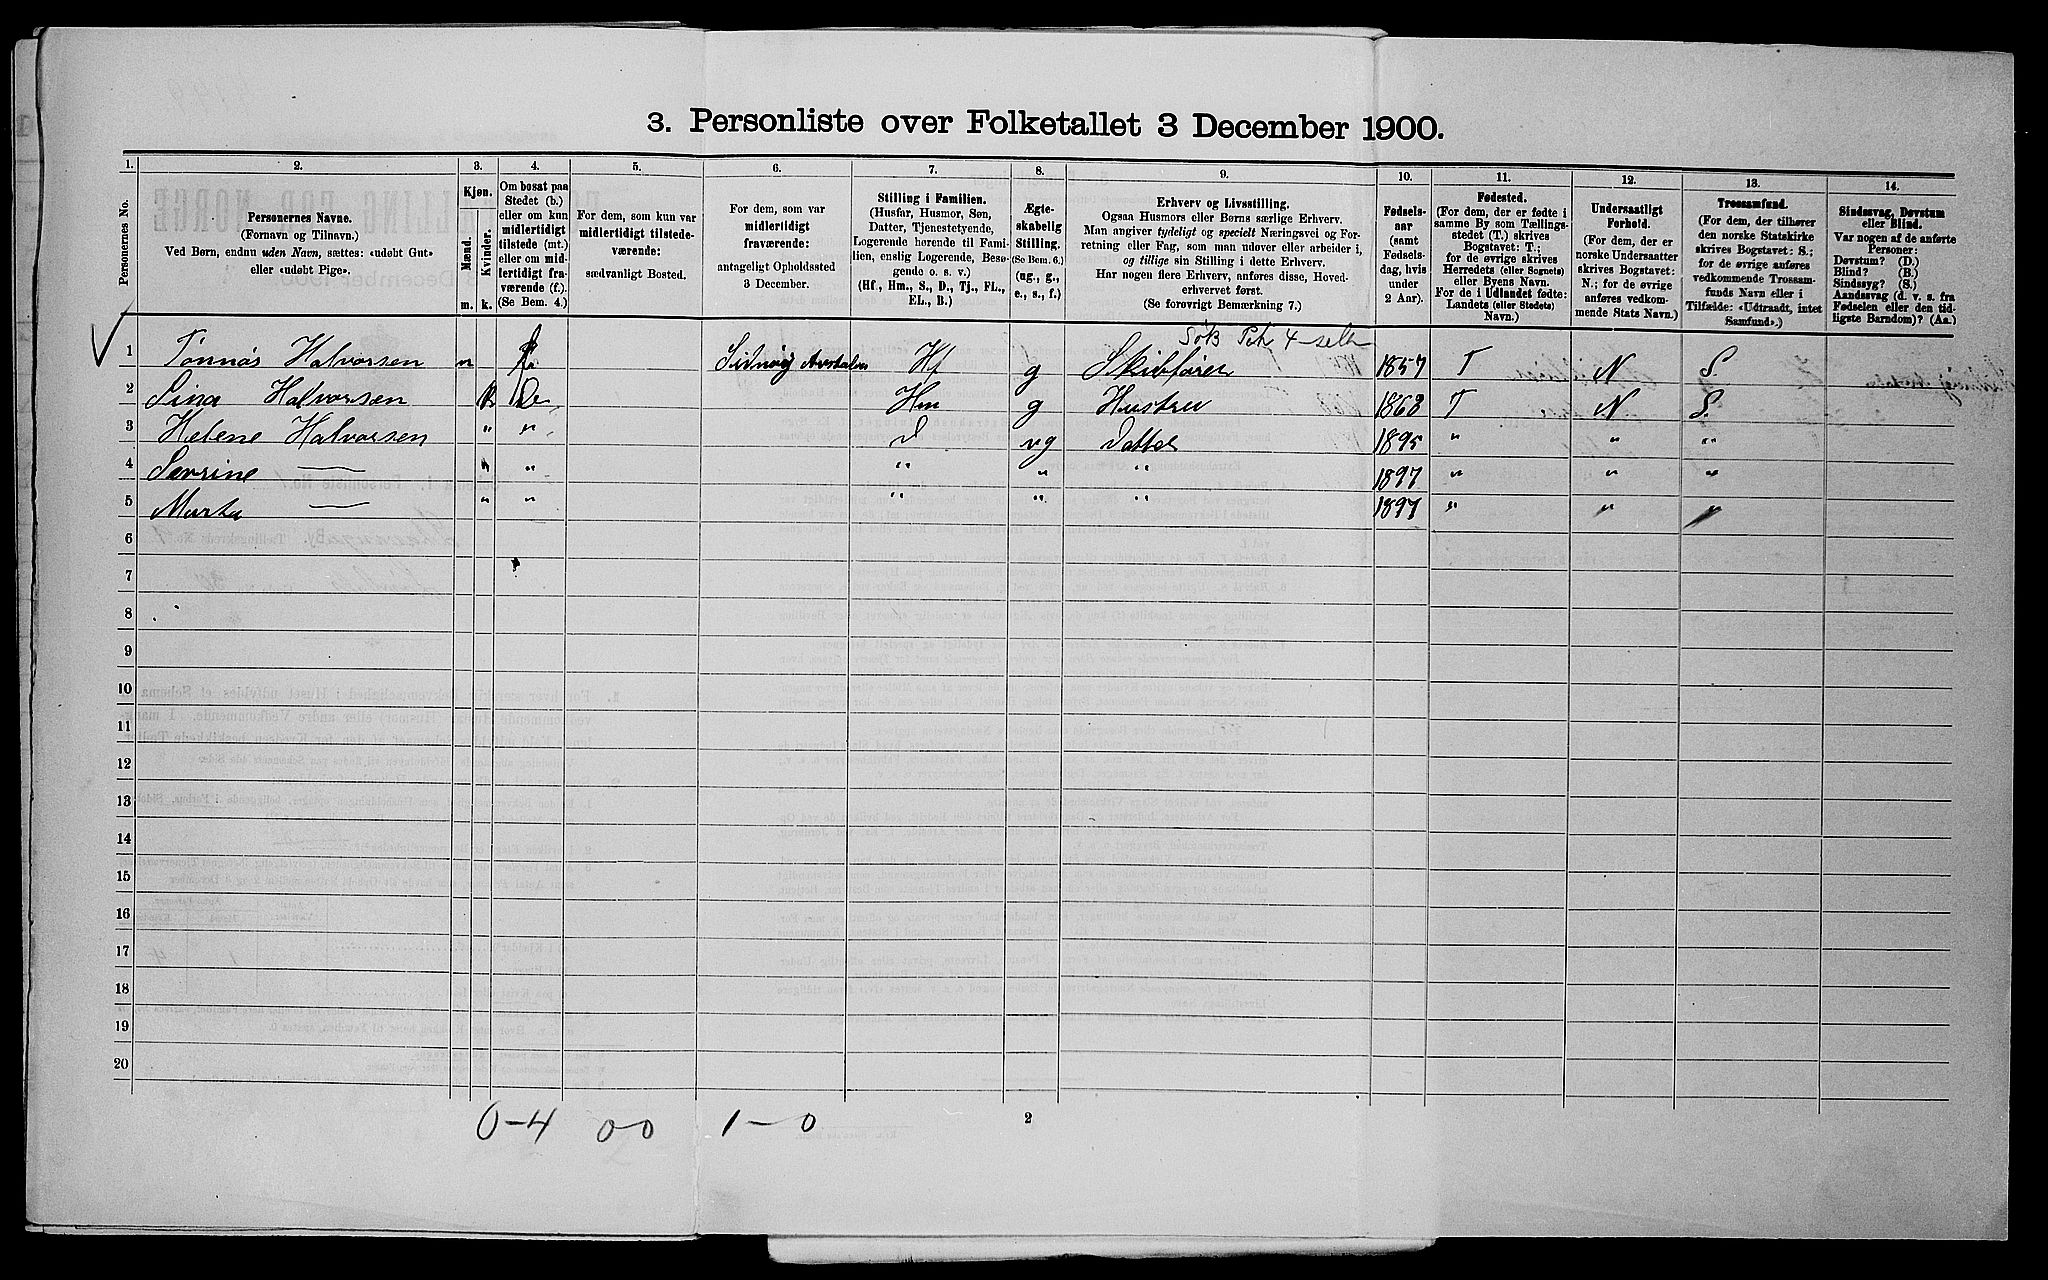 3. Personliste over Folketallet 3 December 1900.
1. 2. 3. 4. 5. 6. 7. 8. 9. 10. 11. 12. 13. 14.
Personernes No.
Personernes Navne.
(Fornavn og Tilnavn.)
Ved Børn, endnu uden Navn, sættes: «udøbt Gut»
eller «udøbt Pige».
Kjøn.
Mænd.
Kvinder.
m. k.
Om bosat paa
Stedet (b.)
eller om kun
midlertidigt
tilstede (mt.)
eller om mid-
lertidigt fra-
værende (f.)
(Se Bem. 4.)
For dem, som kun var
midlertidigt tilstede-
værende:
sædvanligt Bosted.
For dem, som var
midlertidigt
fraværende:
antageligt Opholdssted
3 December.
Stilling i Familien.
(Husfar, Husmor, Søn,
Datter, Tjenestetyende,
Logerende hørende til Fami-
lien, enslig Logerende, Besø-
gende o. s. v.)
(Hf., Hm., S., D., Tj., FL.,
EL., B.)
Ægte-
skabelig
Stilling.
(Se Bem. 6.)
(ug., g.,
e., s., f.)
Erhverv og Livsstilling.
Ogsaa Husmors eller Børns særlige Erhverv.
Man angiver tydeligt og specielt Næringsvei og For-
retning eller Fag, som man udøver eller arbeider i,
og tillige sin Stilling i dette Erhverv.
Har nogen flere Erhverv, anføres disse, Hoved-
erhvervet først.
(Se forøvrigt Bemærkning 7.)
Fødsels-
aar
(samt
Fødsels-
dag, hvis
under
2 Aar).
Fødested.
(For dem, der er fødte i
samme By som Tællings-
stedet (T.) skrives
Bogstavet: T.;
for de øvrige skrives
Herredets (eller Sognets)
eller Byens Navn.
For de i Udlandet fødte:
Landets (eller Stedets)
Navn.)
Undersaatligt
Forhold.
(For dem, der er
norske Undersaatter
skrives Bogstavet:
N.; for de øvrige
anføres vedkom-
mende Stats Navn.)
Trossamfund.
(For dem, der tilhører
den norske Statskirke
skrives Bogstavet: S.;
for de øvrige anføres
vedkommende Trossam-
funds Navn eller i
Tilfælde: «Udtraadt, intet
Samfund».)
Sindssvag, Døvstum
eller Blind.
Var nogen af de anførte
Personer:
Døvstum? (D.)
Blind? (B.)
Sindssyg? (S.)
Aandssvag (d. v. s. fra
Fødselen eller den tid-
ligste Barndom)? (Aa.)
1 Tønnes Halvorsen m Hf g Skibfører 1857 T N S
2 Sina Halvorsen k Hm g Hustru 1868 T N S.
3 Helene Halvorsen " " D ug Datter 1895 " " "
4 Serine — " " " " " 1897 " " "
5 Marta — " " " " " 1897 " " "
6
7
8
9
10
11
12
13
14
15
16
17
18
19
20
0-4 00 1-0 2